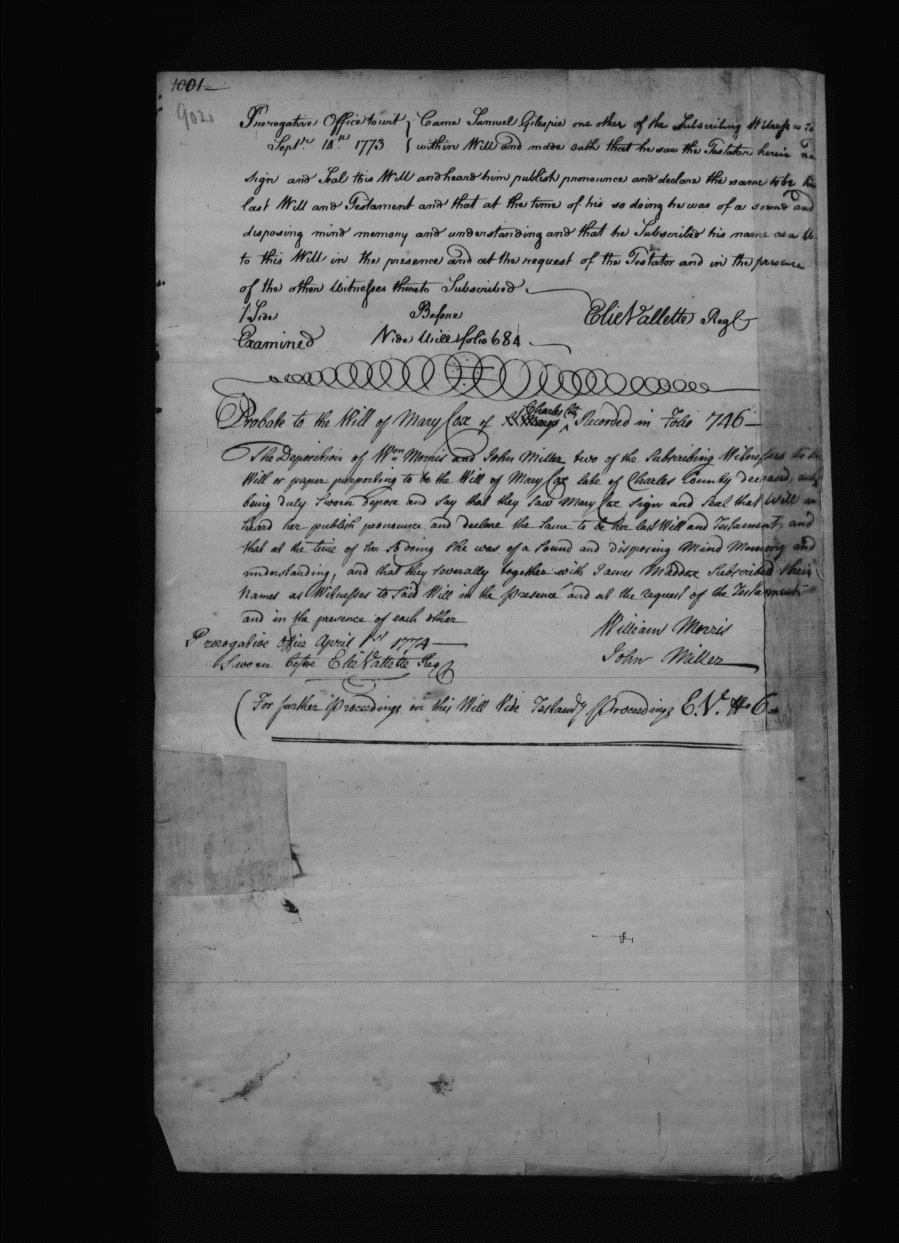 1001
902
Prerogative Office to wit } Came Samuel Gilespie one other of the Subscribing Witnesses to
Septr. 14th 1773 { within Will and made oath that he saw the Testator herein
sign and Seal this Will and heard him publish pronounce and declare the same to be his
last Will and Testament and that at the time of his so doing he was of a sound and
disposing mind memory and understanding and that he Subscribed his name as a
to this Will in the presence and at the request of the Testator and in the presence
of the other Witnesses thereto Subscribed
1 Side Before Elie Vallette Regr
Examined Vide Will folio 684
Probate to the Will of Mary Cox of Charles Cty Recorded in Folio 746
The Deposition of Wm Morris and John Miller two of the Subscribing Witnesses to
Will or paper purporting to be the Will of Mary Cox late of Charles County deceased, and
being duly Sworn depose and say that they saw Mary Cox Sign and Seal that Will
heard her publish pronounce and declare the Same to be her last Will and Testament, and
that at the time of her so doing She was of a Sound and disposing Mind Memory and
understanding, and that they severally together with James Maddox Subscribed their
Names as Witnesses to said Will in the presence and at the request of the Testament
and in the presence of each other
William Morris
Prerogative Office April 1st 1774
John Miller
Sworn before Elie Vallette Regr
(For further Proceedings on this Will Vide Testamy Proceedings E.V. No 6